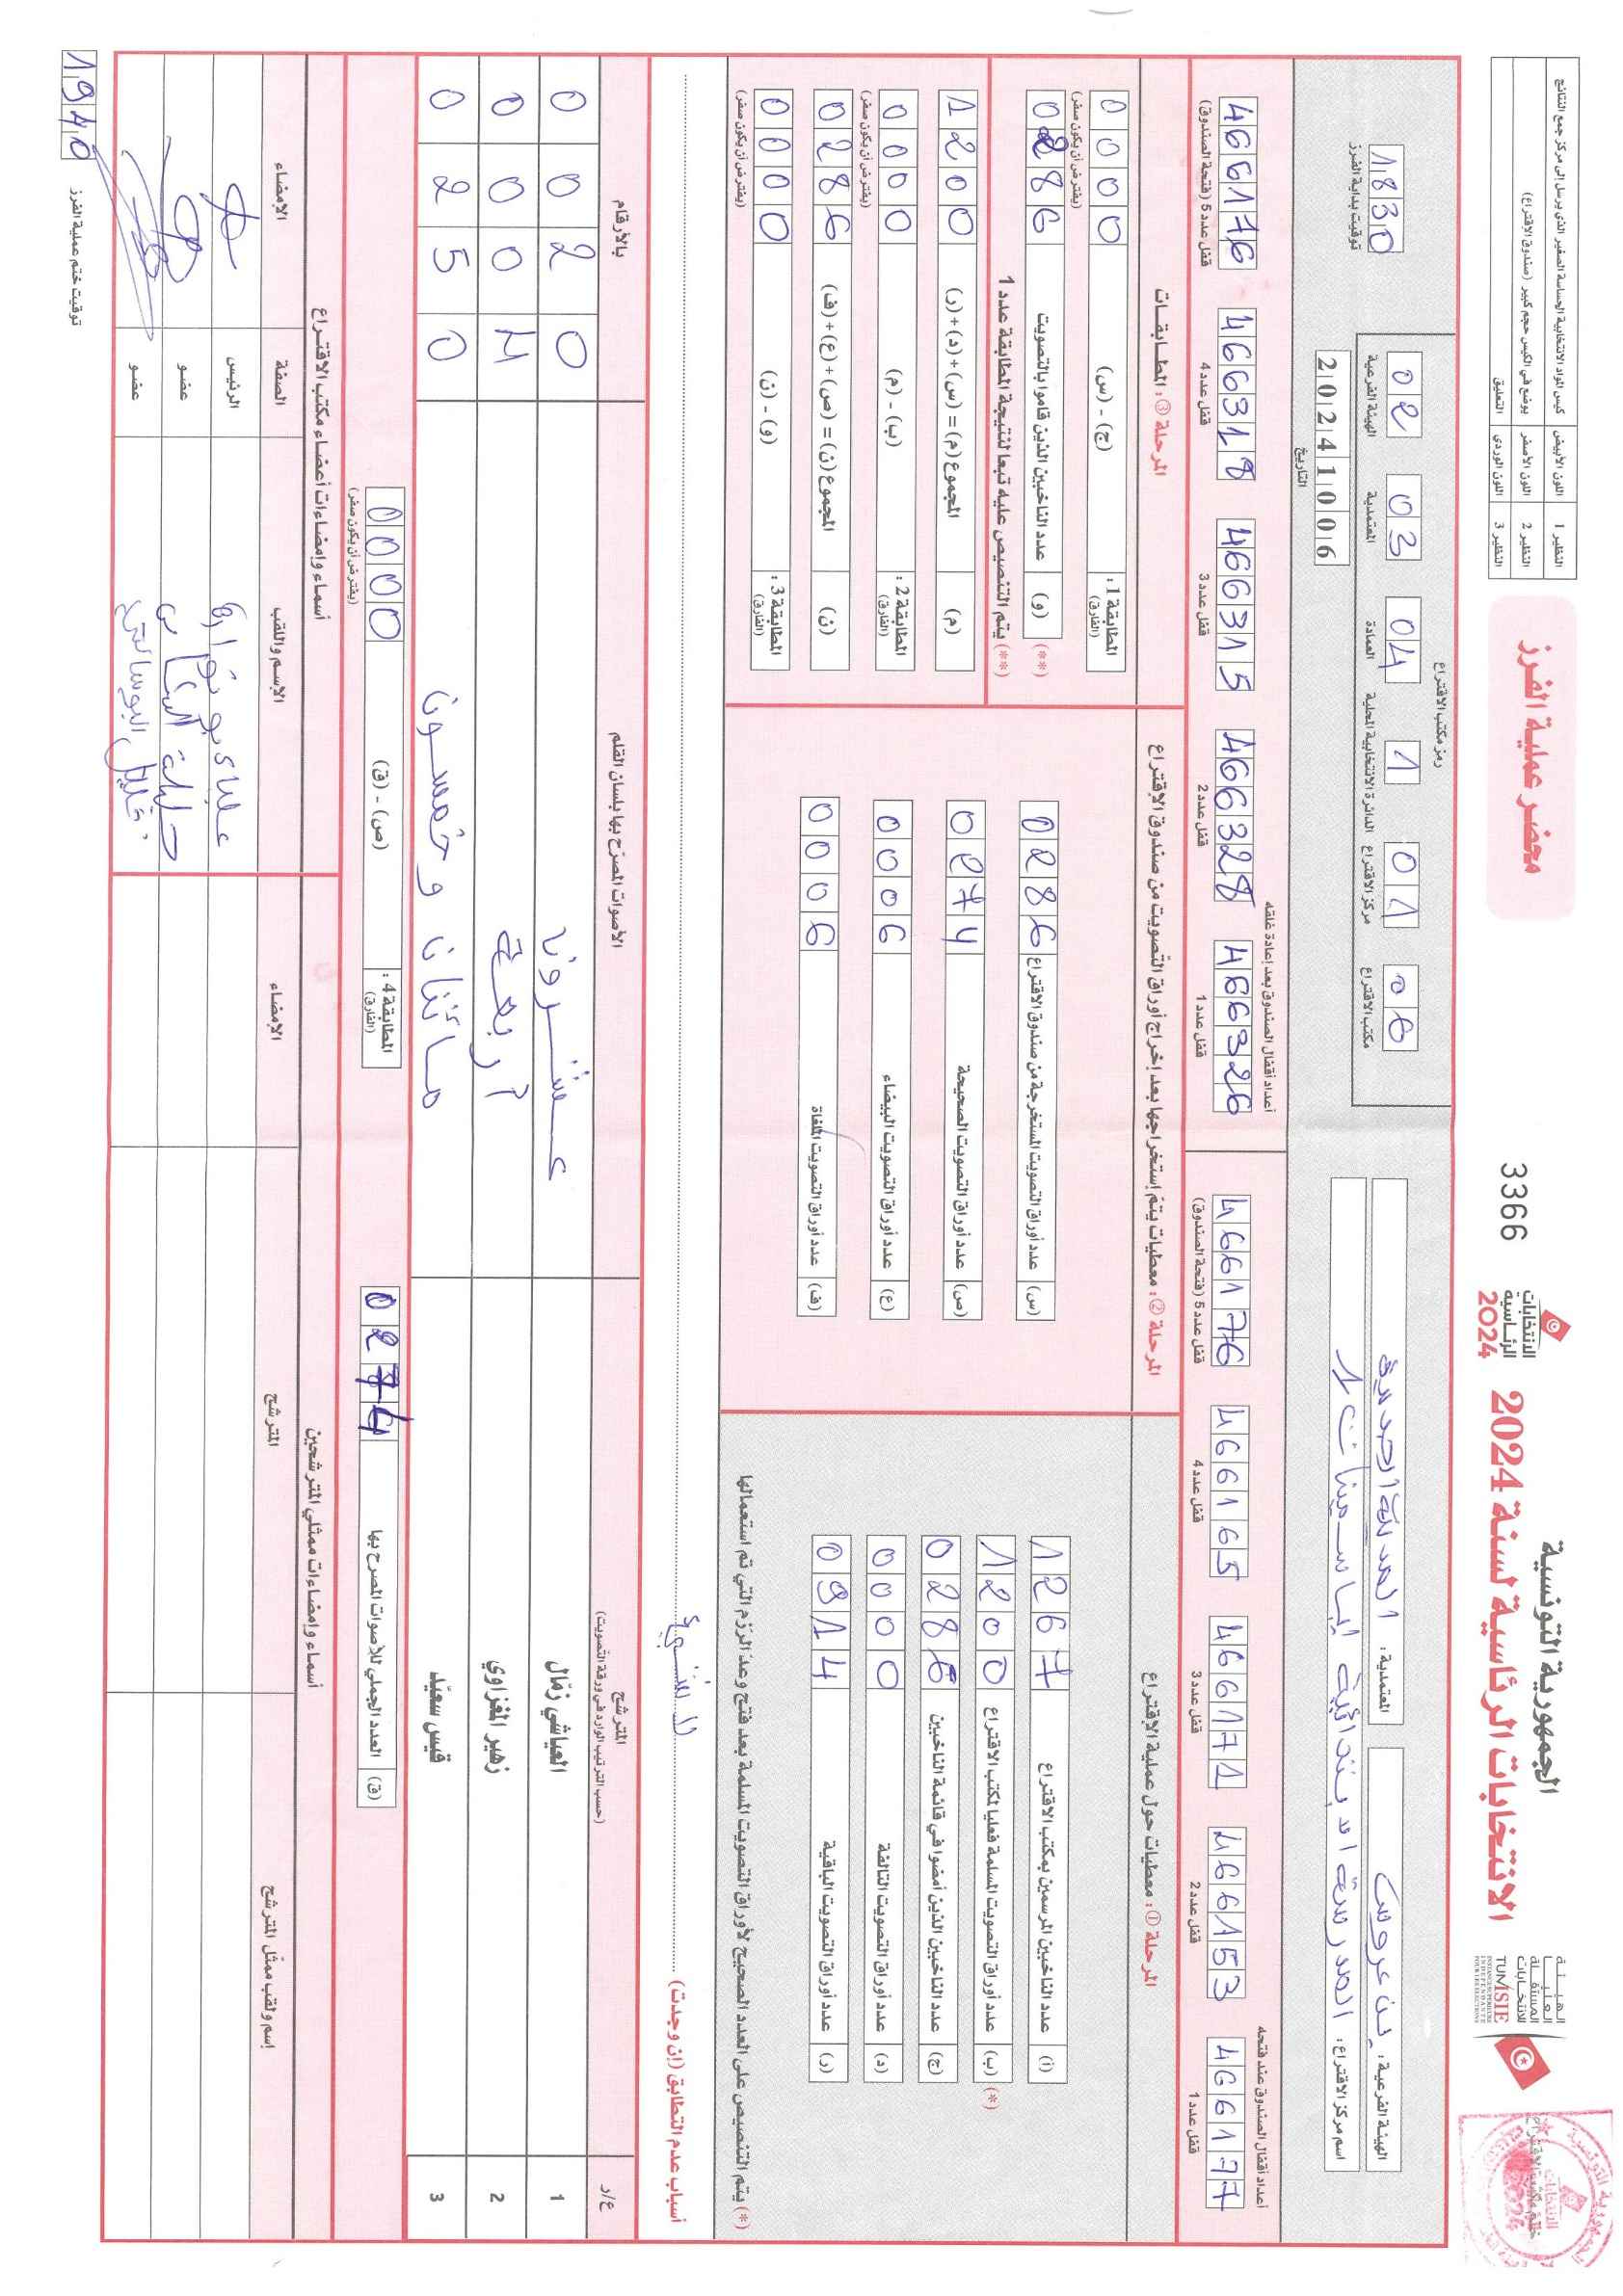 الجمهورية التونسية
الانتخابات الرئاسية لسنة 2024
الهيئة
العليا
المستقلة
للانتخابات
TUNISIE
الانتخابات
الرئاسية
2024
3366
محضر عملية الفرز
النظير 1 اللون الأبيض كيس المواد الانتخابية الحساسة الصغير الذي يرسل إلى مركز جمع النتائج
النظير 2 اللون الأصفر يوضع في الكيس حجم كبير (صندوق الاقتراع)
النظير 3 اللون الوردي التعليق
الهيئة الفرعية: بن عروس
المعتمدية: المدينة الجديدة
اسم مركز الاقتراع: المدرسة الابتدائية الياسمينات 1
رمز مكتب الاقتراع
06 مكتب الاقتراع
01 مركز الاقتراع
1 الدائرة الانتخابية المحلية
04 العمادة
03 المعتمدية
02 الهيئة الفرعية
20241006
التاريخ
1830
توقيت بداية الفرز
أعداد أقفال الصندوق عند فتحه
4661177 قفل عدد 1
4661153 قفل عدد 2
4661171 قفل عدد 3
4661165 قفل عدد 4
4661176 قفل عدد 5 (فتحة الصندوق)
أعداد أقفال الصندوق بعد إعادة غلقه
4663326 قفل عدد 1
4663328 قفل عدد 2
4663315 قفل عدد 3
4663318 قفل عدد 4
4661176 قفل عدد 5 (فتحة الصندوق)
المرحلة ①: معطيات حول عملية الاقتراع
(أ) عدد الناخبين المرسمين بمكتب الاقتراع 1267
(*) (ب) عدد أوراق التصويت المسلمة فعليا لمكتب الاقتراع 1200
(ج) عدد الناخبين الذين أمضوا في قائمة الناخبين 0286
(د) عدد أوراق التصويت التالفة 0000
(ر) عدد أوراق التصويت الباقية 0914
(*) يتم التنصيص على العدد الصحيح لأوراق التصويت المسلمة بعد فتح وعد الرزم التي تم استعمالها
المرحلة ②: معطيات يتم إستخراجها بعد إخراج أوراق التصويت من صندوق الاقتراع
(س) عدد أوراق التصويت المستخرجة من صندوق الاقتراع 0286
(ص) عدد أوراق التصويت الصحيحة 0274
(ع) عدد أوراق التصويت البيضاء 0006
(ف) عدد أوراق التصويت الملغاة 0006
المرحلة ③: المطابقات
المطابقة 1: (الفارق) (ج) - (س) 000
(يفترض أن يكون صفر)
(**) (و) عدد الناخبين الذين قاموا بالتصويت 0286
(**) يتم التنصيص عليه تبعا لنتيجة المطابقة عدد 1
(م) المجموع (م) = (س) + (د) + (ر) 1200
المطابقة 2: (الفارق) (ب) - (م) 000
(يفترض أن يكون صفر)
(ن) المجموع (ن) = (ص) + (ع) + (ف) 0286
المطابقة 3: (الفارق) (و) - (ن) 0000
(يفترض أن يكون صفر)
أسباب عدم التطابق (إن وجدت)
ع/ر المترشح الأصوات المصرّح بها بلسان القلم بالأرقام
(حسب الترتيب الوارد في ورقة التصويت)
1 العياشي زمّال عشرون 0020
2 زهير المغزاوي أربعة 0004
3 قيس سعيّد مائتان و خمسون 0250
(ق) العدد الجملي للأصوات المصرح بها 0274
المطابقة 4: (الفارق) (ص) - (ق) 0000
(يفترض أن يكون صفر)
أسماء وإمضاءات ممثلي المترشحين
إسم ولقب ممثّل المترشح المترشح الإمضاء
أسماء وإمضاءات أعضاء مكتب الاقتراع
الإسم واللقب الصفة الإمضاء
الرئيس
عضو
عضو
1940
توقيت ختم عملية الفرز